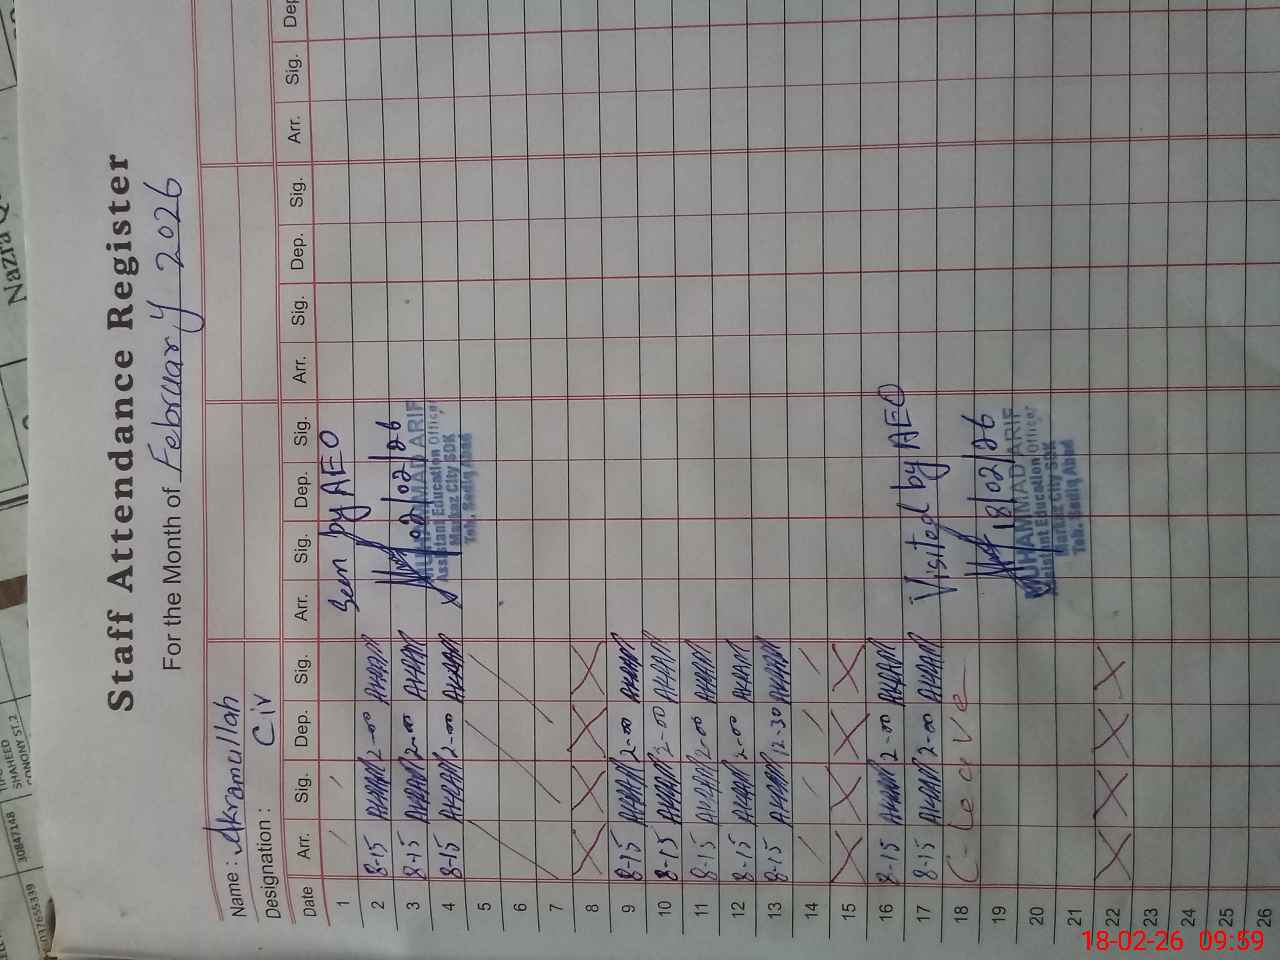 Staff Attendance Register
For the Month of February 2026
Name : Akramullah
Designation : CIV
Date Arr. Sig. Dep. Sig. Arr. Sig. Dep. Sig. Arr. Sig. Dep. Sig. Arr. Sig. Dep.
1 Seen by AEO
2 8-15 2-00
3 8-15 2-00 02/02/26
MUHAMMAD ARIF
Assistant Education Officer
Markaz City SDK
Teh. Sadiq Abad
4 8-15 2-00
5
6
7
8 X X X X
9 8-15 2-00
10 8-15 2-00
11 8-15 2-00
12 8-15 2-00
13 8-15 12-30
14
15 X X X X
16 8-15 2-00
17 8-15 2-00 Visited by AEO
18 C-leave
19 18/02/26
MUHAMMAD ARIF
Assistant Education Officer
Markaz City SDK
Teh. Sadiq Abad
20
21
22 X X X X
23
24
25
26
Nazra Q
SHAHEED
CONOMY ST.2
30847148
017655339
18-02-26 09:59